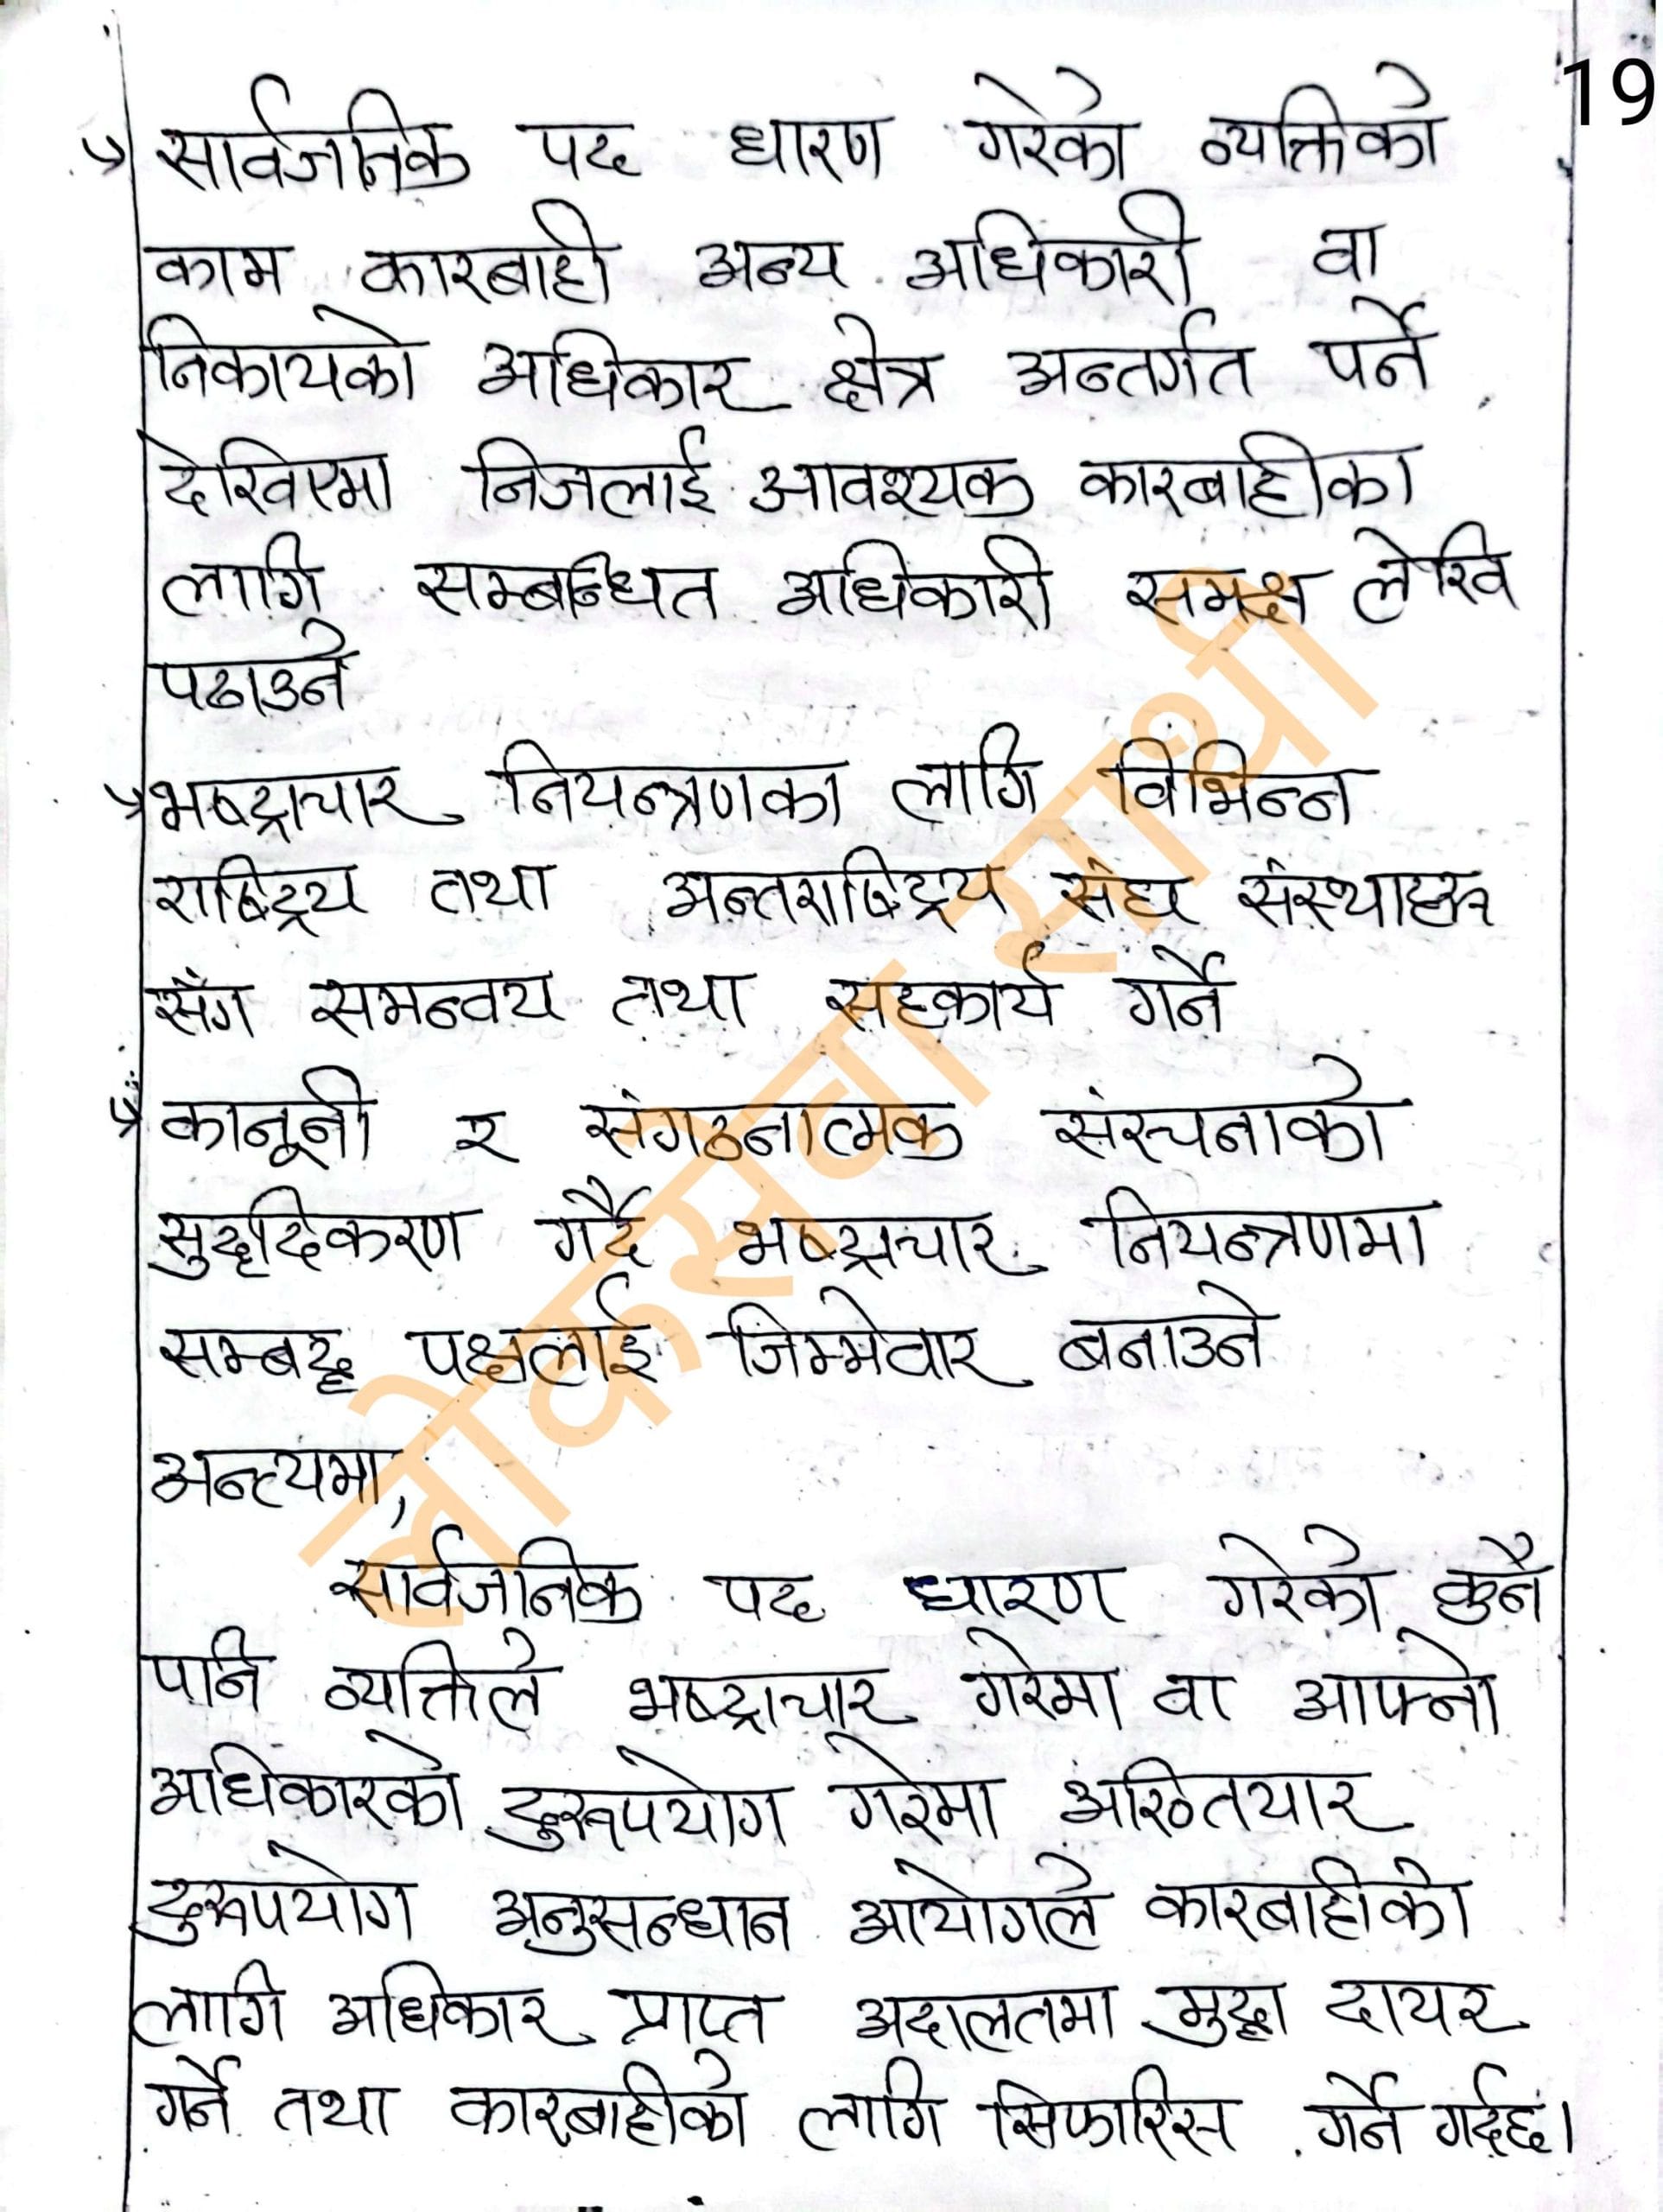 19
↳ सार्वजनिक पद धारण गरेको व्यक्तिको
काम कारबाही अन्य अधिकारी वा
निकायको अधिकार क्षेत्र अन्तर्गत पर्ने
देखिएमा निजलाई आवश्यक कारबाहीका
लागि सम्बन्धित अधिकारी समक्ष लेखि
पठाउने
↳ भष्ट्राचार नियन्त्रणका लागि विभिन्न
राष्ट्रिय तथा अन्तराष्ट्रिय संघ संस्थाहरू
सँग समन्वय तथा सहकार्य गर्ने
↳ कानूनी र संगठनात्मक संरचनाको
सुदृढिकरण गर्दै भष्ट्राचार नियन्त्रणमा
सम्बद्ध पक्षलाई जिम्मेवार बनाउने
अन्त्यमा,
सार्वजनिक पद धारण गरेको कुनै
पनि व्यक्तिले भष्ट्राचार गरेमा वा आफ्नो
अधिकारको दुरूपयोग गरेमा अख्तियार
दुरूपयोग अनुसन्धान आयोगले कारबाहीको
लागि अधिकार प्राप्त अदालतमा मुद्दा दायर
गर्ने तथा कारबाहीको लागि सिफारिस गर्ने गर्दछ।
लोकसेवा साथी